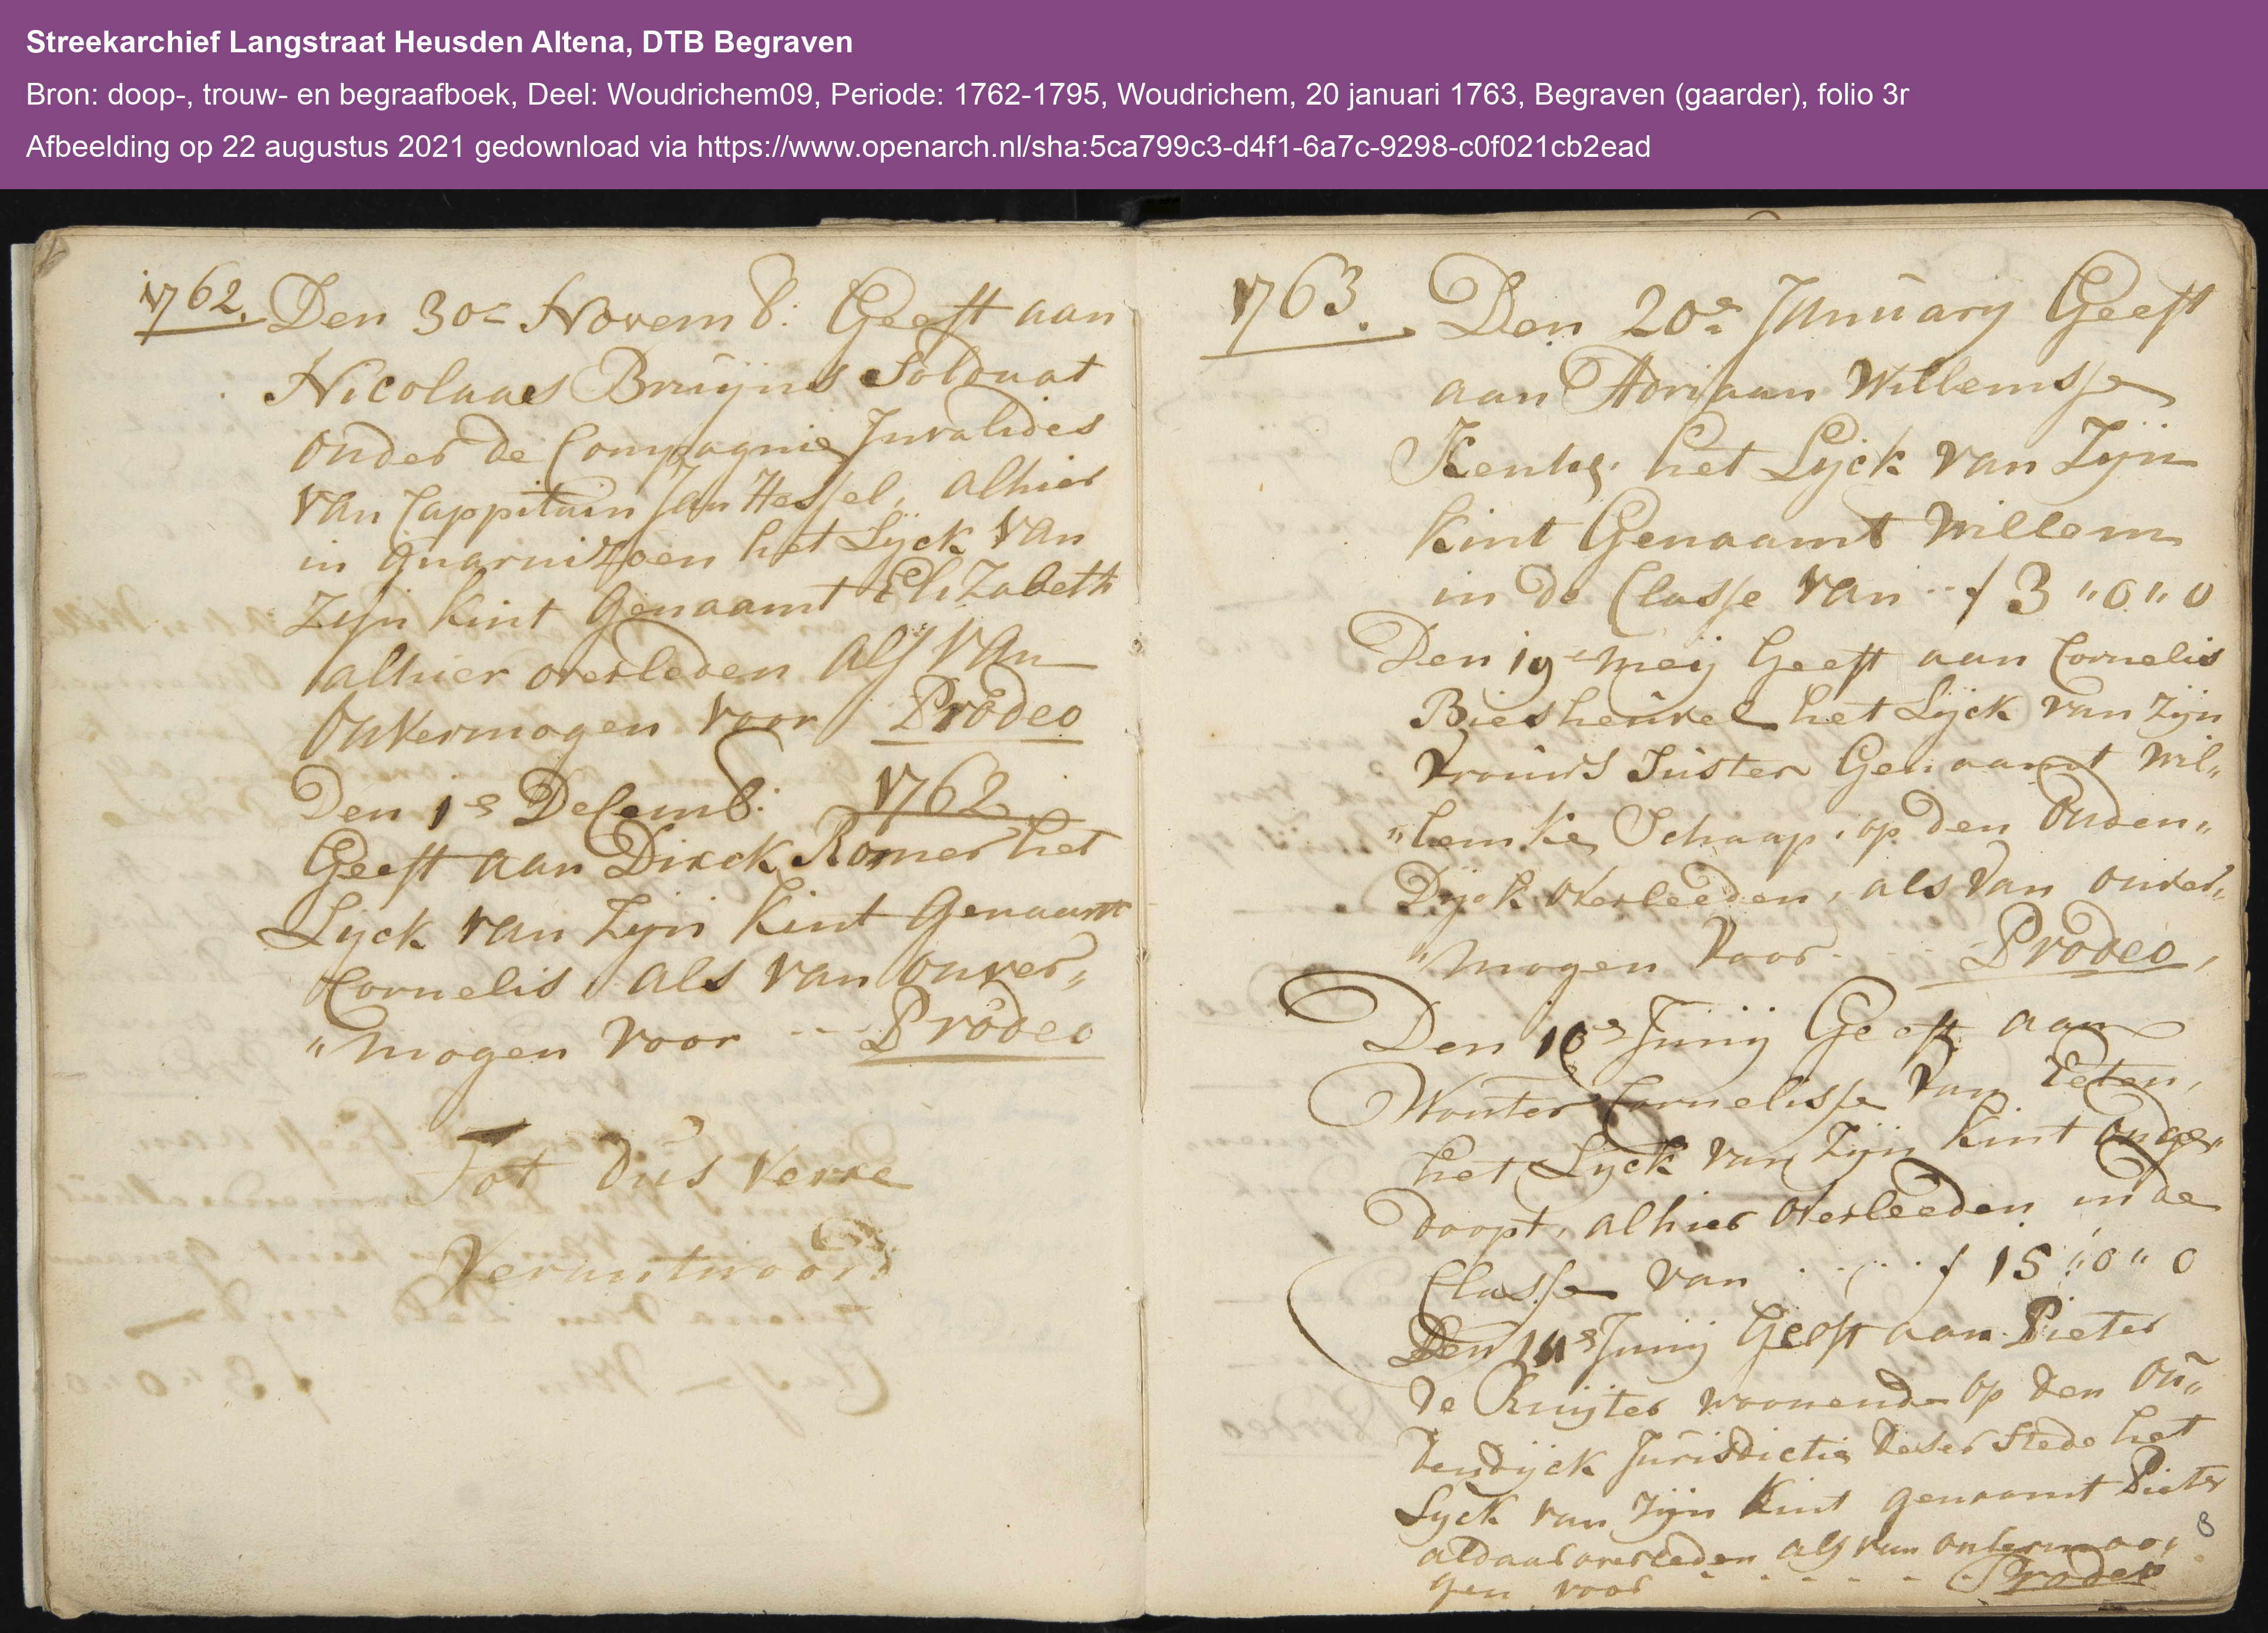 Streekarchief Langstraat Heusden Altena, DTB Begraven
Bron: doop-, trouw- en begraafboek, Deel: Woudrichem09, Periode: 1762-1795, Woudrichem, 20 januari 1763, Begraven (gaarder), folio 3r
Afbeelding op 22 augustus 2021 gedownload via https://www.openarch.nl/sha:5ca799c3-d4f1-6a7c-9298-c0f021cb2ead
1762. Den 30e Novemb: Geeft aan
Nicolaas Bruÿns Soldaat
onder de Compagnie Invalides
van Cappitain Jan Hessel, alhier
in guarnizoen het Lyck van
Zyn kint Genaamt Elizabeth
alhier overleden als van
onvermogen voor Prodeo
Den 1e Decemb: 1762
Geeft aan Dirck Romer het
Lyck van Zyn Kint Genaamt
Cornelis, als van onver„
„mogen voor -- Prodeo
Tot dus verre
Verantwoord
1763. Den 20e January Geeft
aan Adriaan Willemsse
het Lyck van Zÿn
kint Genaamt Willem
in de Classe van -- f 3 "0" 0
Den 19e meÿ Geeft aan Cornelis
Biesheuvel het Lÿck van Zÿn
vrouws Suster Genaamt Wil„
„lemke Schaap, op den Ouden„
Dÿck overleeden, als van onver„
„mogen voor - - Prodeo,
Den 10e Junÿ Geeft aan
Wouter Cornelisse van Eeten,
het Lyck van Zÿn kint onge„
doopt, alhier overleeden in de
Classe van . . . . f 15 "0" 0
Den Junÿ Geeft aan Pieter
de Ruyter woonende op den Ou„
dendÿck Jurisdictie deser Stede het
Lyck van Zÿn Kint genaamt Pieter
aldaar overleden als van onvermoo„
gen voor - - - - - Prodeo